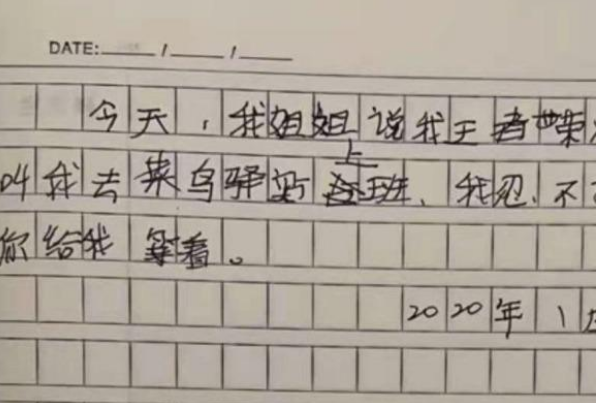 DATE: / /
今天，我姐姐说我王者荣
叫我去菜鸟驿站上班、我忍、不
你给我等着。
2020年1